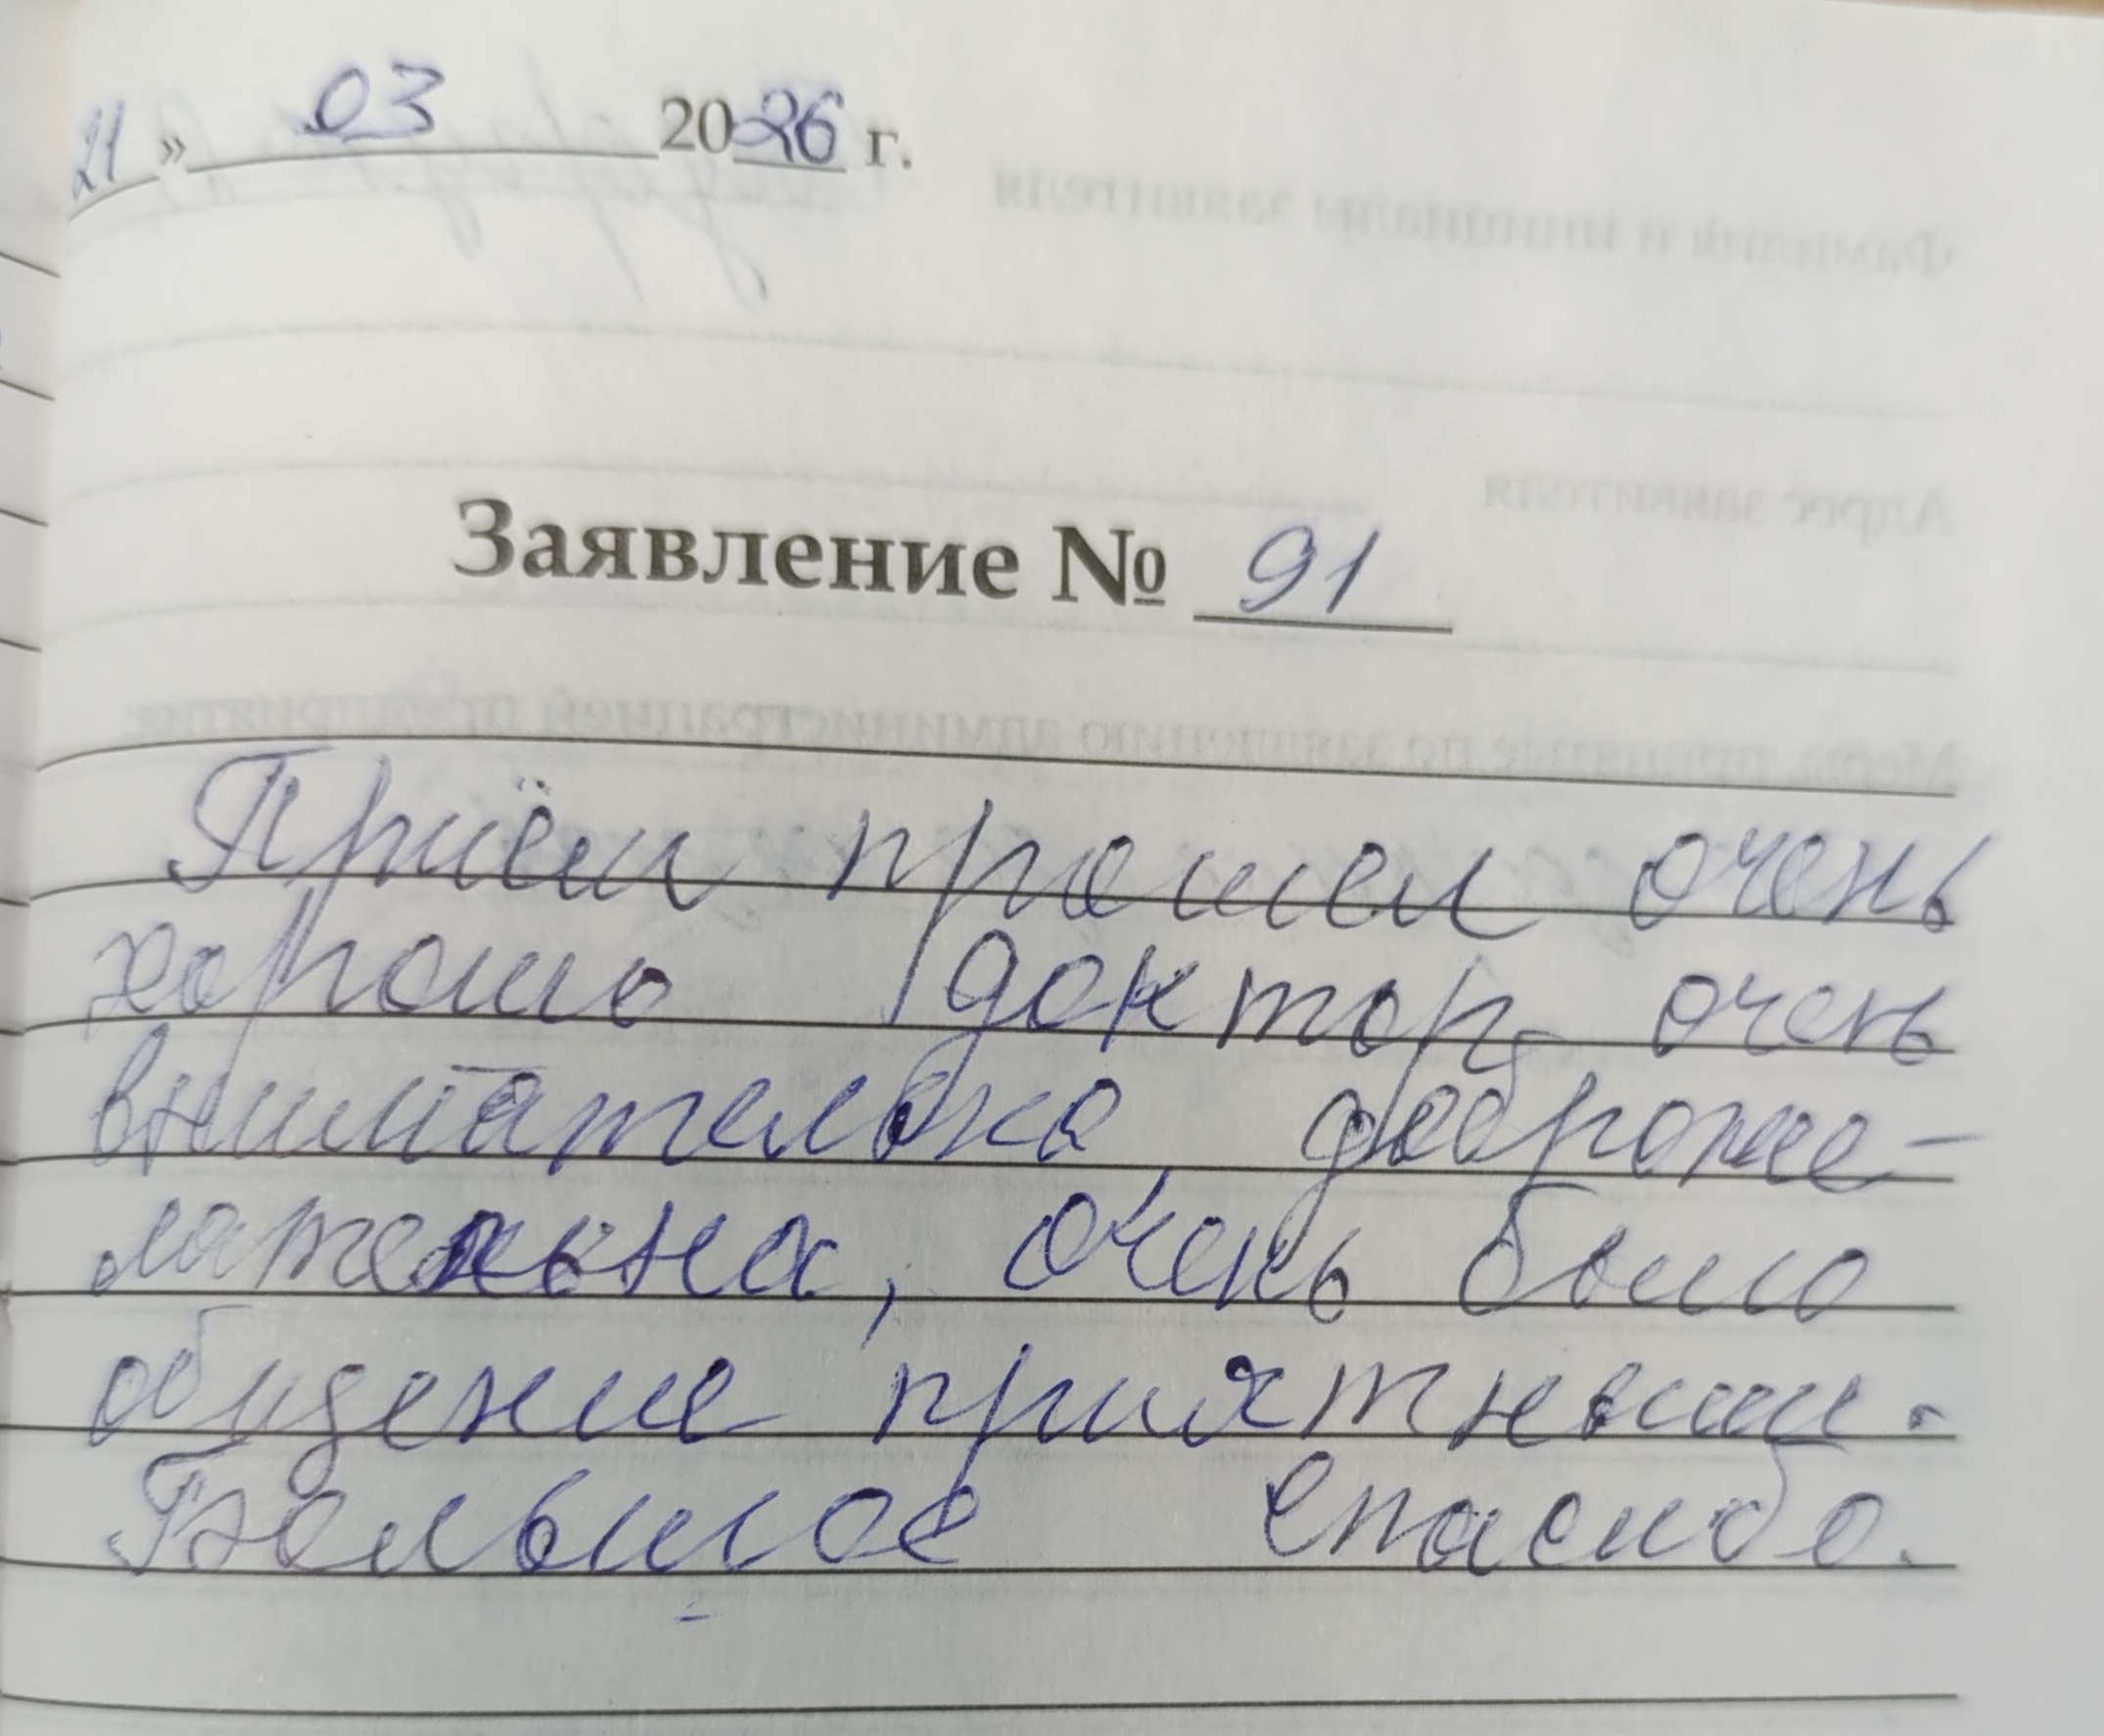 21 » 03 2026 г.
Заявление № 91
Приём прошел очень
хорошо доктор очень
внимательна доброже-
лательна, очень было
общение приятным.
Большое спасибо.